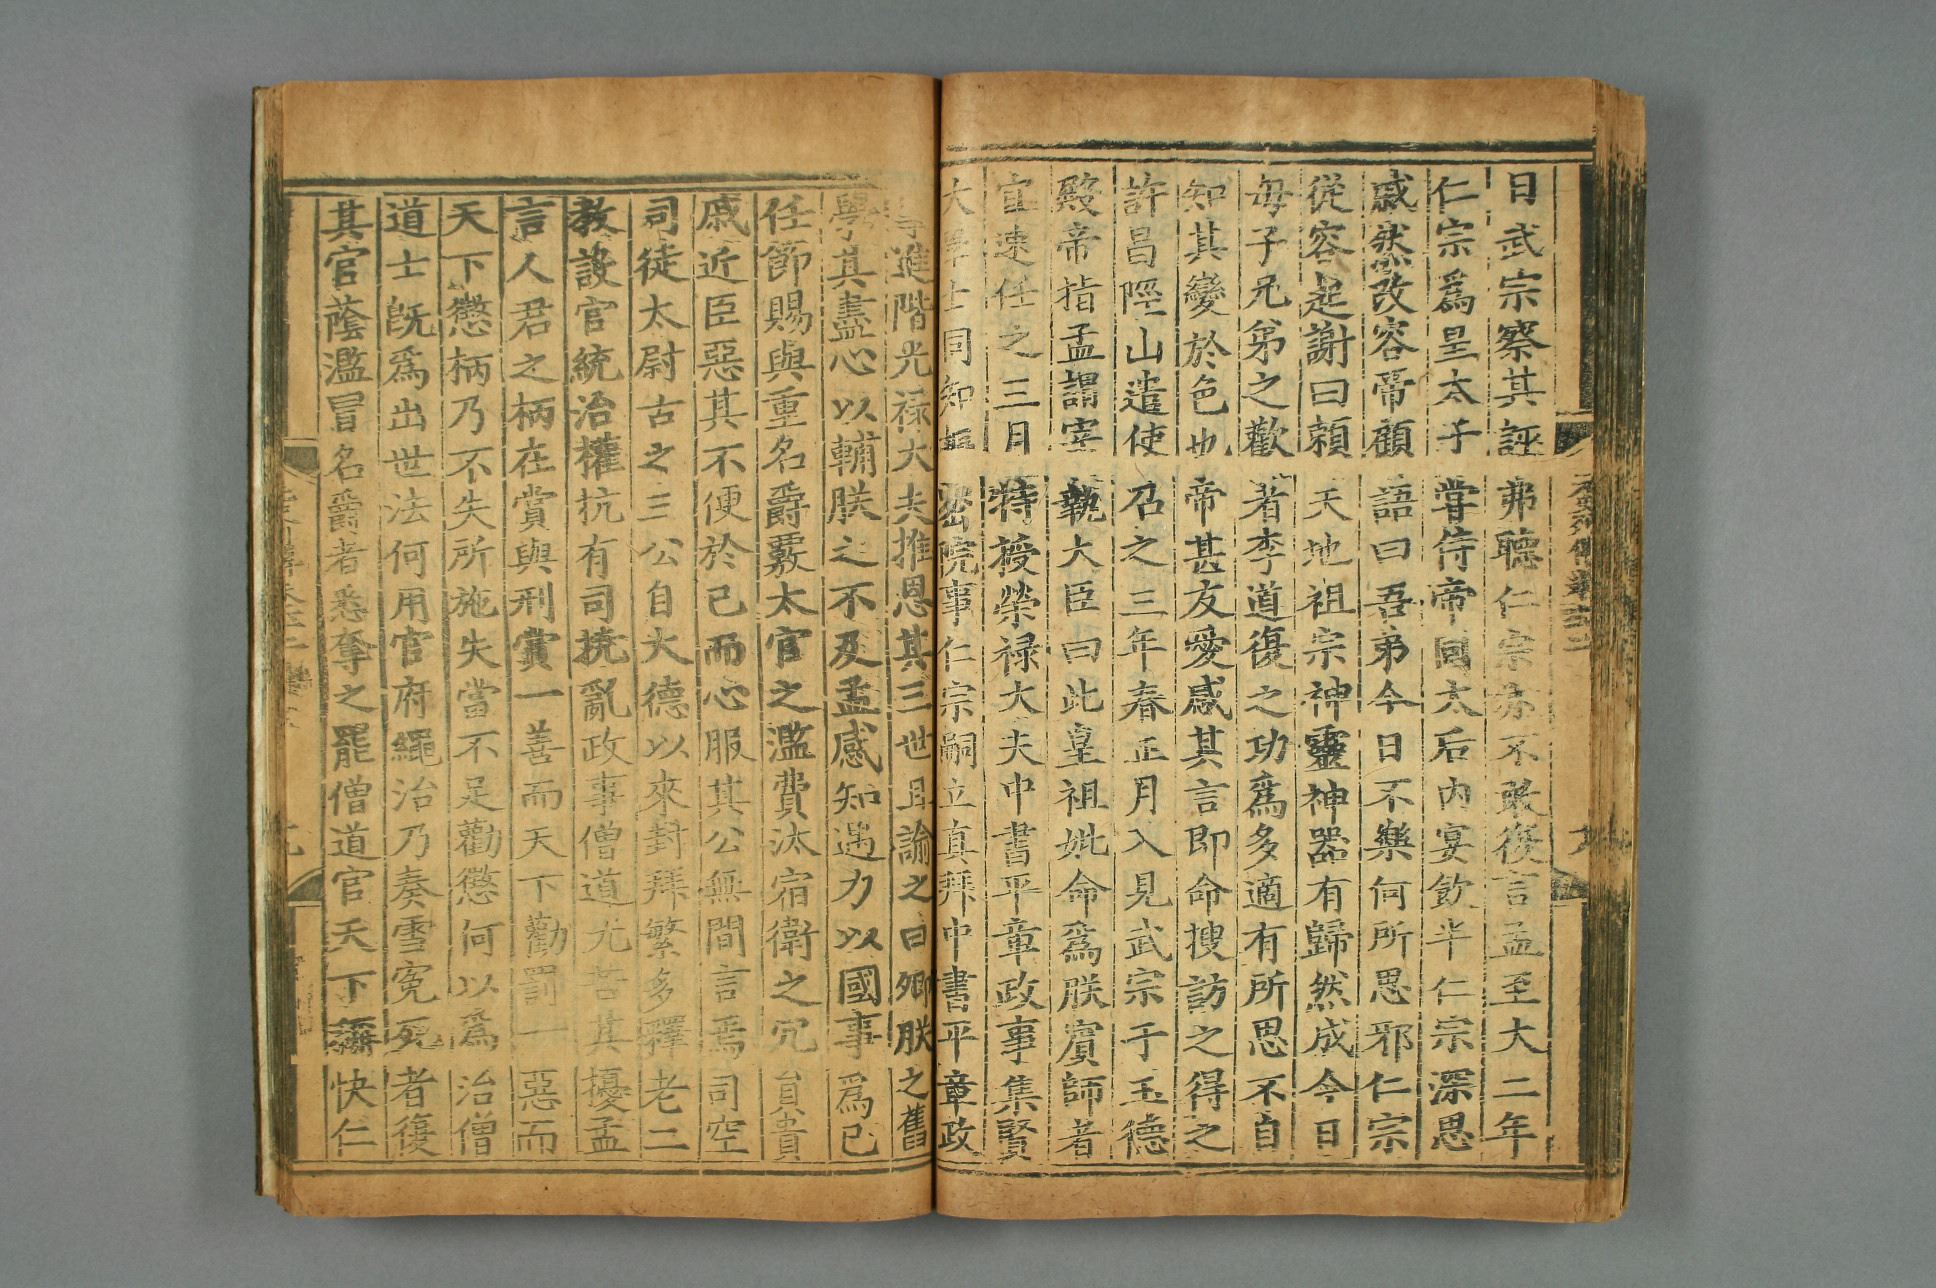 日武宗察其誣弗聽仁宗亦不敢復言孟至大二年
仁宗爲皇太子嘗侍帝同太后内宴飲半仁宗深思
戚然改容帝顧語曰吾弟今日不樂何所思邪仁宗
從容起謝曰賴天地祖宗神靈神器有歸然成今日
母子兄弟之歡者李道復之功爲多適有所思不自
知其變於色也帝甚友愛感其言即命搜訪之得之
許昌陘山遣使召之三年春正月入見武宗于玉德
殿帝指孟謂宰執大臣曰此皇祖妣命爲朕賓師者
宜速任之三月特授榮祿大夫中書平章政事集賢
大學士同知樞密院事仁宗嗣立真拜中書平章政
事進階光祿大夫推恩其三世且諭之曰卿朕之舊
學其盡心以輔朕之不及孟感知遇力以國事爲己
任節賜與重名爵覈太官之濫費汰宿衛之冗員貴
戚近臣惡其不便於己而心服其公無間言焉司空
司徒太尉古之三公自大德以來封拜繁多釋老二
教設官統治權抗有司撓亂政事僧道尤苦其擾孟
言人君之柄在賞與刑賞一善而天下勸罰一惡而
天下懲柄乃不失所施失當不足勸懲何以爲治僧
道士既爲出世法何用官府繩治乃奏雪冤死者復
其官蔭濫冒名爵者悉奪之罷僧道官天下稱快仁